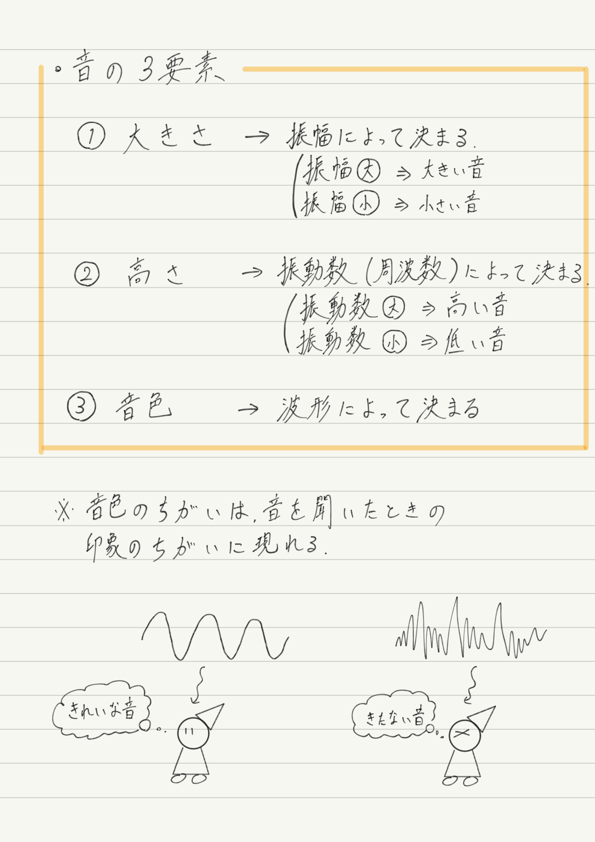 ・音の3要素
① 大きさ → 振幅によって決まる.
振幅㊅ ⇒ 大きい音
振幅㊙ ⇒ 小さい音
② 高さ → 振動数(周波数)によって決まる.
振動数大 ⇒ 高い音
振動数小 ⇒ 低い音
③ 音色 → 波形によって決まる
※ 音色のちがいは,音を聞いたときの
印象のちがいに現れる.
きれいな音
きたない音